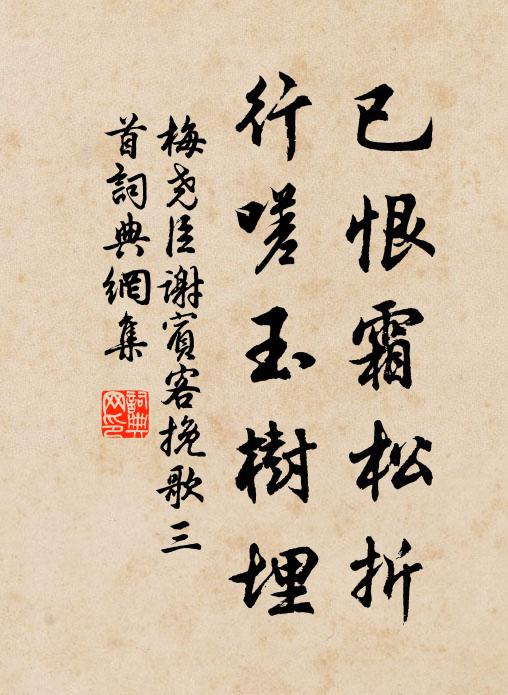 已恨霜松折
行嗟玉樹埋
梅尧臣謝賓客挽歌三
首詞典網集
詞典
网印